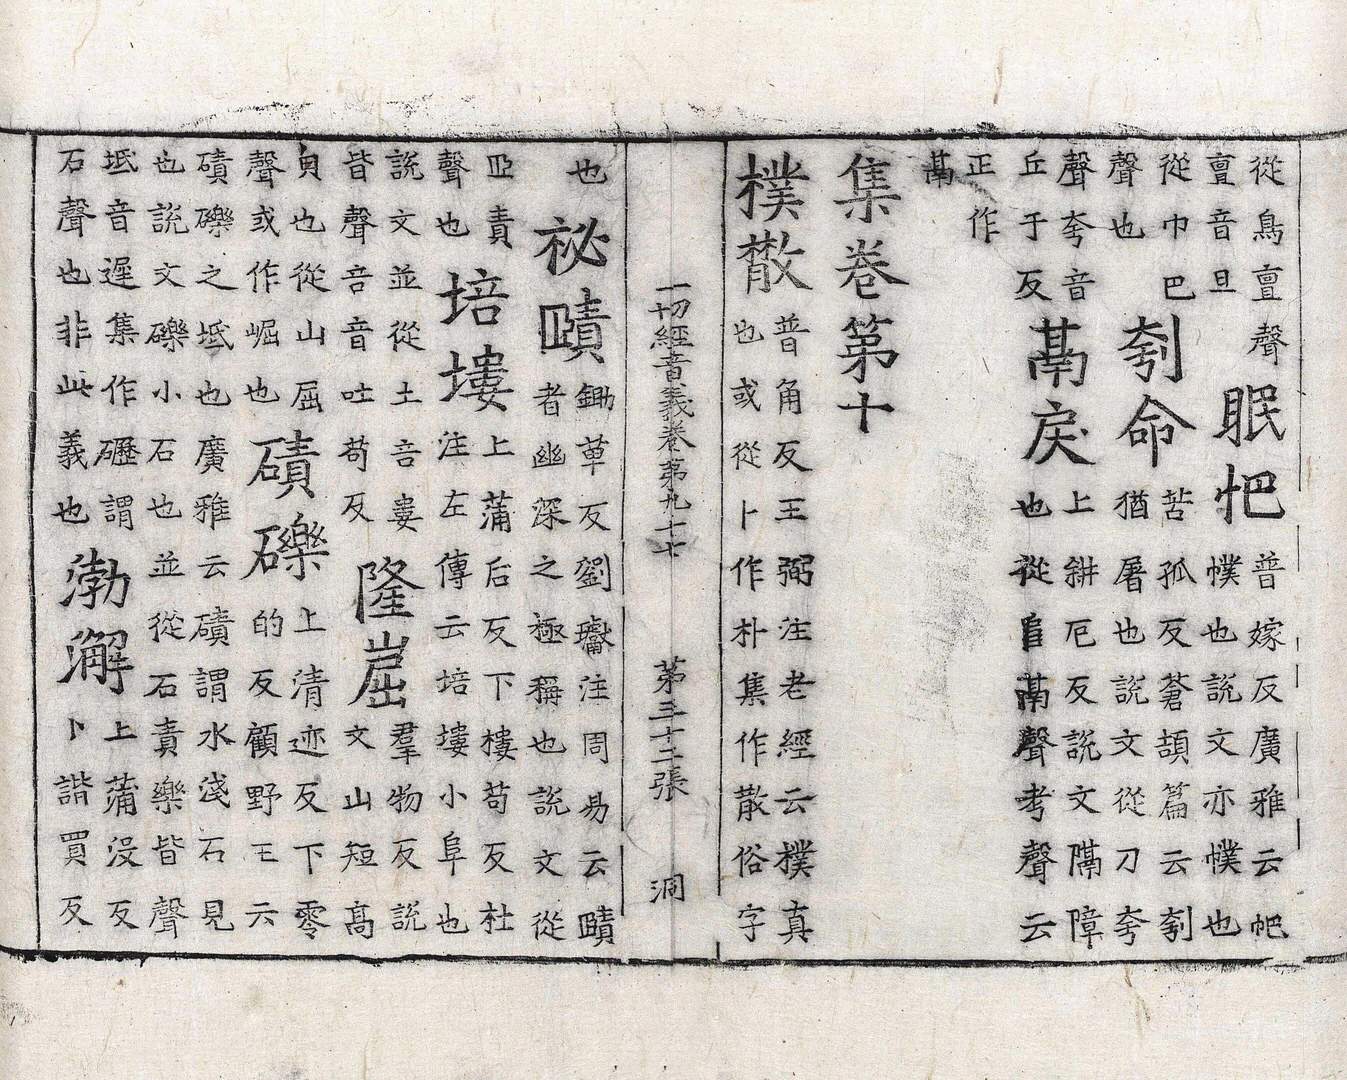 從鳥亶聲
亶音旦
眠帊
普嫁反廣雅云帊
幞也說文亦幞也
從巾巴
聲也
刳命
苦孤反蒼頡篇云刳
猶屠也說文從刀夸
聲夸音
丘于反
鬲戾
上耕厄反說文隔障
也從𨸏鬲聲考聲云
正作
鬲
集卷第十
樸散
普角反王弼注老經云樸真
也或從卜作朴集作散俗字
一切經音義卷第九十七 第三十二張 洞
也
祕賾
鋤革反劉瓛注周易云賾
者幽深之極稱也說文從
𦣞責
聲也
培塿
上蒲后反下樓苟反杜
注左傳云培塿小阜也
說文並從土咅婁
皆聲咅音吐苟反
隆崫
羣物反說
文山短高
皃也從山屈
聲或作崛也
磧礫
上清迹反下零
的反顧野王云
磧礫之坻也廣雅云磧謂水淺石見
也說文礫小石也並從石責樂皆聲
坻音遲集作礰謂
石聲也非此義也
渤澥
上蒲沒反
卜諧買反